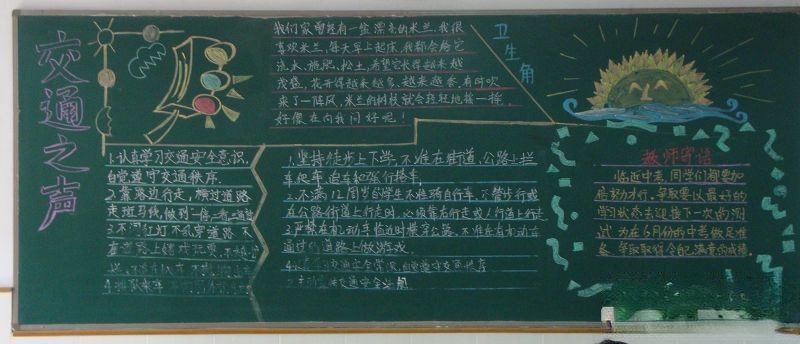 交通之声
我们家曾经有一盆漂亮的米兰,我很
喜欢米兰,每天早上起床,我都会给它
浇水、施肥、松土,希望它长得越来越
茂盛,花开得越来越多,越来越香,有时吹
来了一阵风,米兰的树枝就会轻轻地摇一摇,
好像在向我问好呢!
卫生角
1.认真学习交通安全意识,
自觉遵守交通秩序.
2.靠路边行走,横过道路
走斑马线,做到一停
3.不闯红灯不乱穿道路不
在道路上嬉戏玩耍,
1.坚持徒步上下学,不准在街道、公路上拦
车爬车追车和强行搭车,
2.不满12周岁的学生不准骑自行车,不赞步行或
在公路街道上行走时,必须靠右行走或人行道上行走
3.严禁在机动车临近时横穿公路,不准在有机动车
通过的道路上做游戏
交通安全常识,自觉遵守交通秩序
交通安全
教师寄语
临近中考,同学们都要加
倍努力才行,争取要以最好的
学习状态去迎接下一次的测
试,为在6月份的中考做足准
备,争取取得令自己满意的成绩.